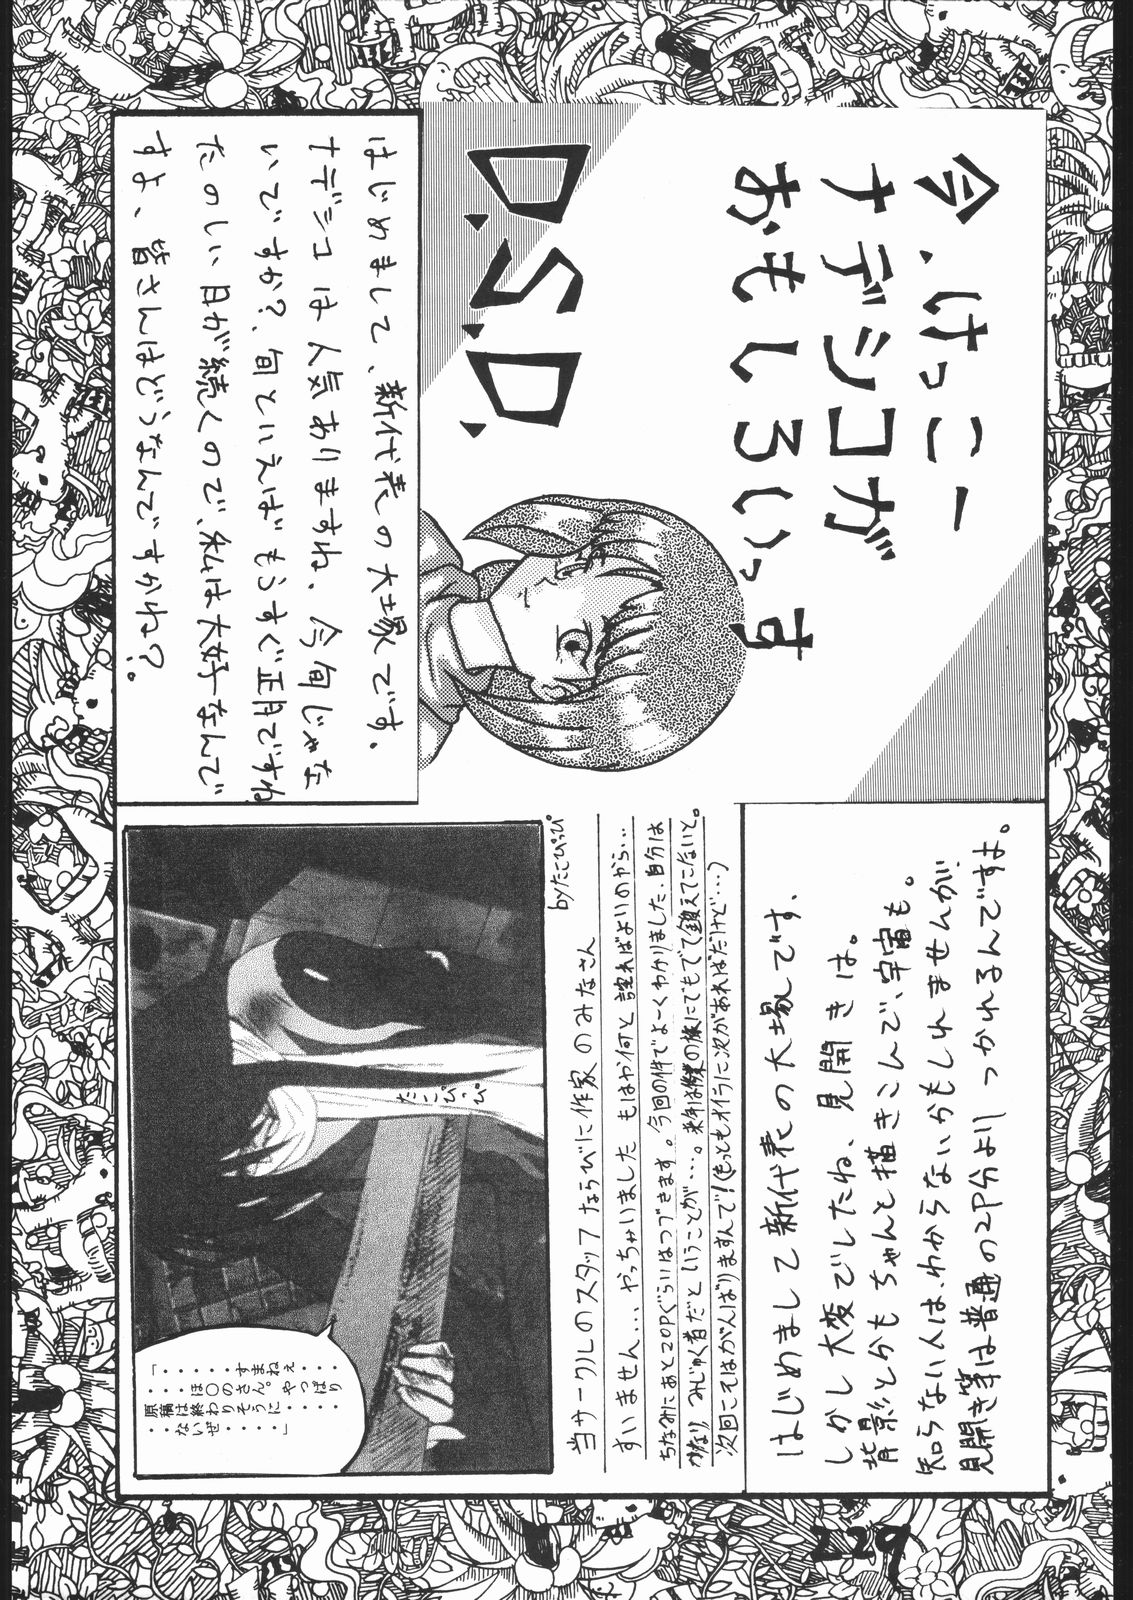 今、けっこー
ナデシコが
おもしろいっす
D.S.D.
はじめまして、新代表の大塚です、
ナデシコは人気ありますね、今旬じゃな
いですか?、旬といえばもうすぐ正月ですね
たのしい日が続くので、私は大好なんで
すよ、皆さんはどうなんですかね?。
はじめまして新代表の大塚です、
しかし大変でしたね、見開きは。
背景とかもちゃんと描きこんで、宇宙も。
知らない人は、わからないかもしれませんが、
見開き等は普通の2P分よりつかれるんですよ。
当サークルのスタッフならびに作家のみなさん
すいません、、、やっちゃいました もはや何と詫ればよいのやら…
ちなみにあと20Pぐらいはつづきます。今回の件でよーくわかりました、自分は
かなりみじゅく者だということが…。来年は修業の旅にでもでて鍛えてこないと。
次回こそはがんばりますんで!(もっともオイラに次があればだけど…)
byたこぴっぴ
たこぴっぴ
「・・・・・・すまねぇ・・・
・・・・ほ〇のさん。やっぱり
原稿は終わりそうに・・・・・
・・ないぜ・・・・」
229